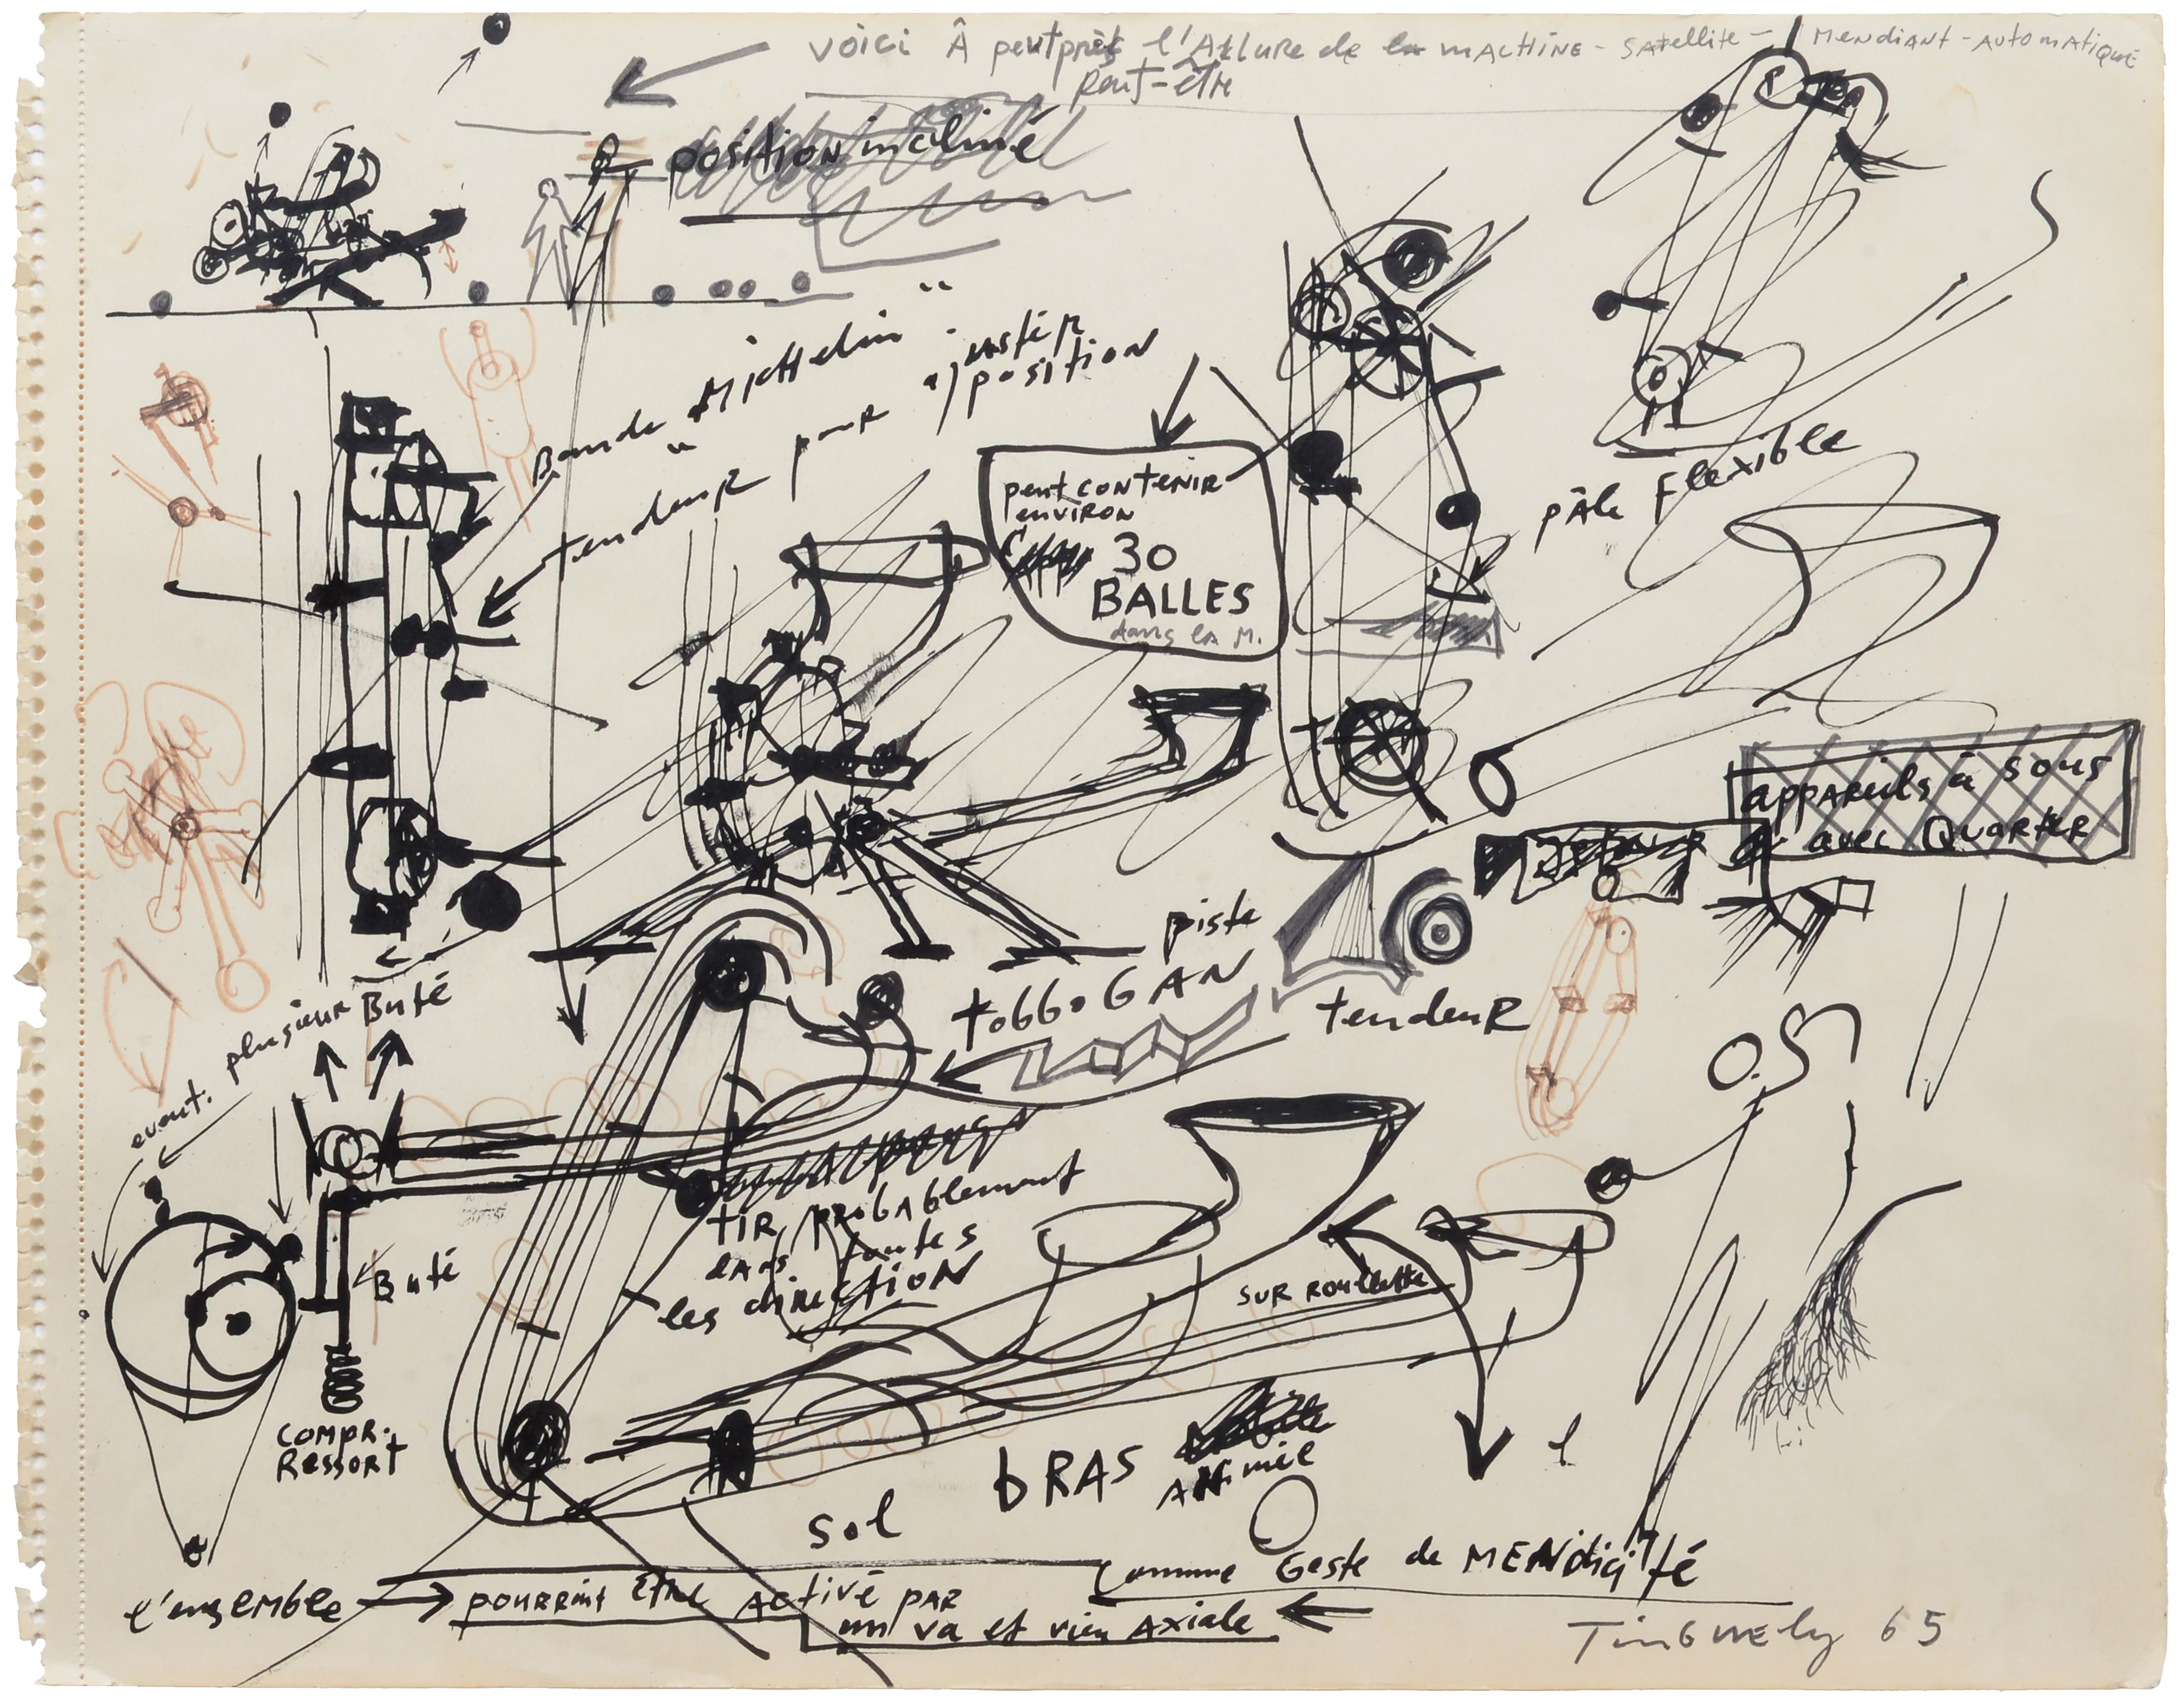 voici À peutprès l'Allure de la mACHINE - SAtellite - MENDIANT - AUTOMATIQUE
peut-être
position incliné
Bande "Michelin"
tendeuR pouR ajustéR
position
peut CONTENIR
environ
30
BALLES
dans la M.
pâle Flexible
appareils à sous
avec QUARTER
piste
tobboGAN
tendeuR
event. plusieur Buté
0.5
tiR probablement
dans toutes
les direction
Buté
SUR Roulette
COMPR.
Ressort
bRAS
ANimée
sol
l'ensemble → pourrait être activé par
un va et vien Axiale
comme Geste de MENdicité
TinGuely 65